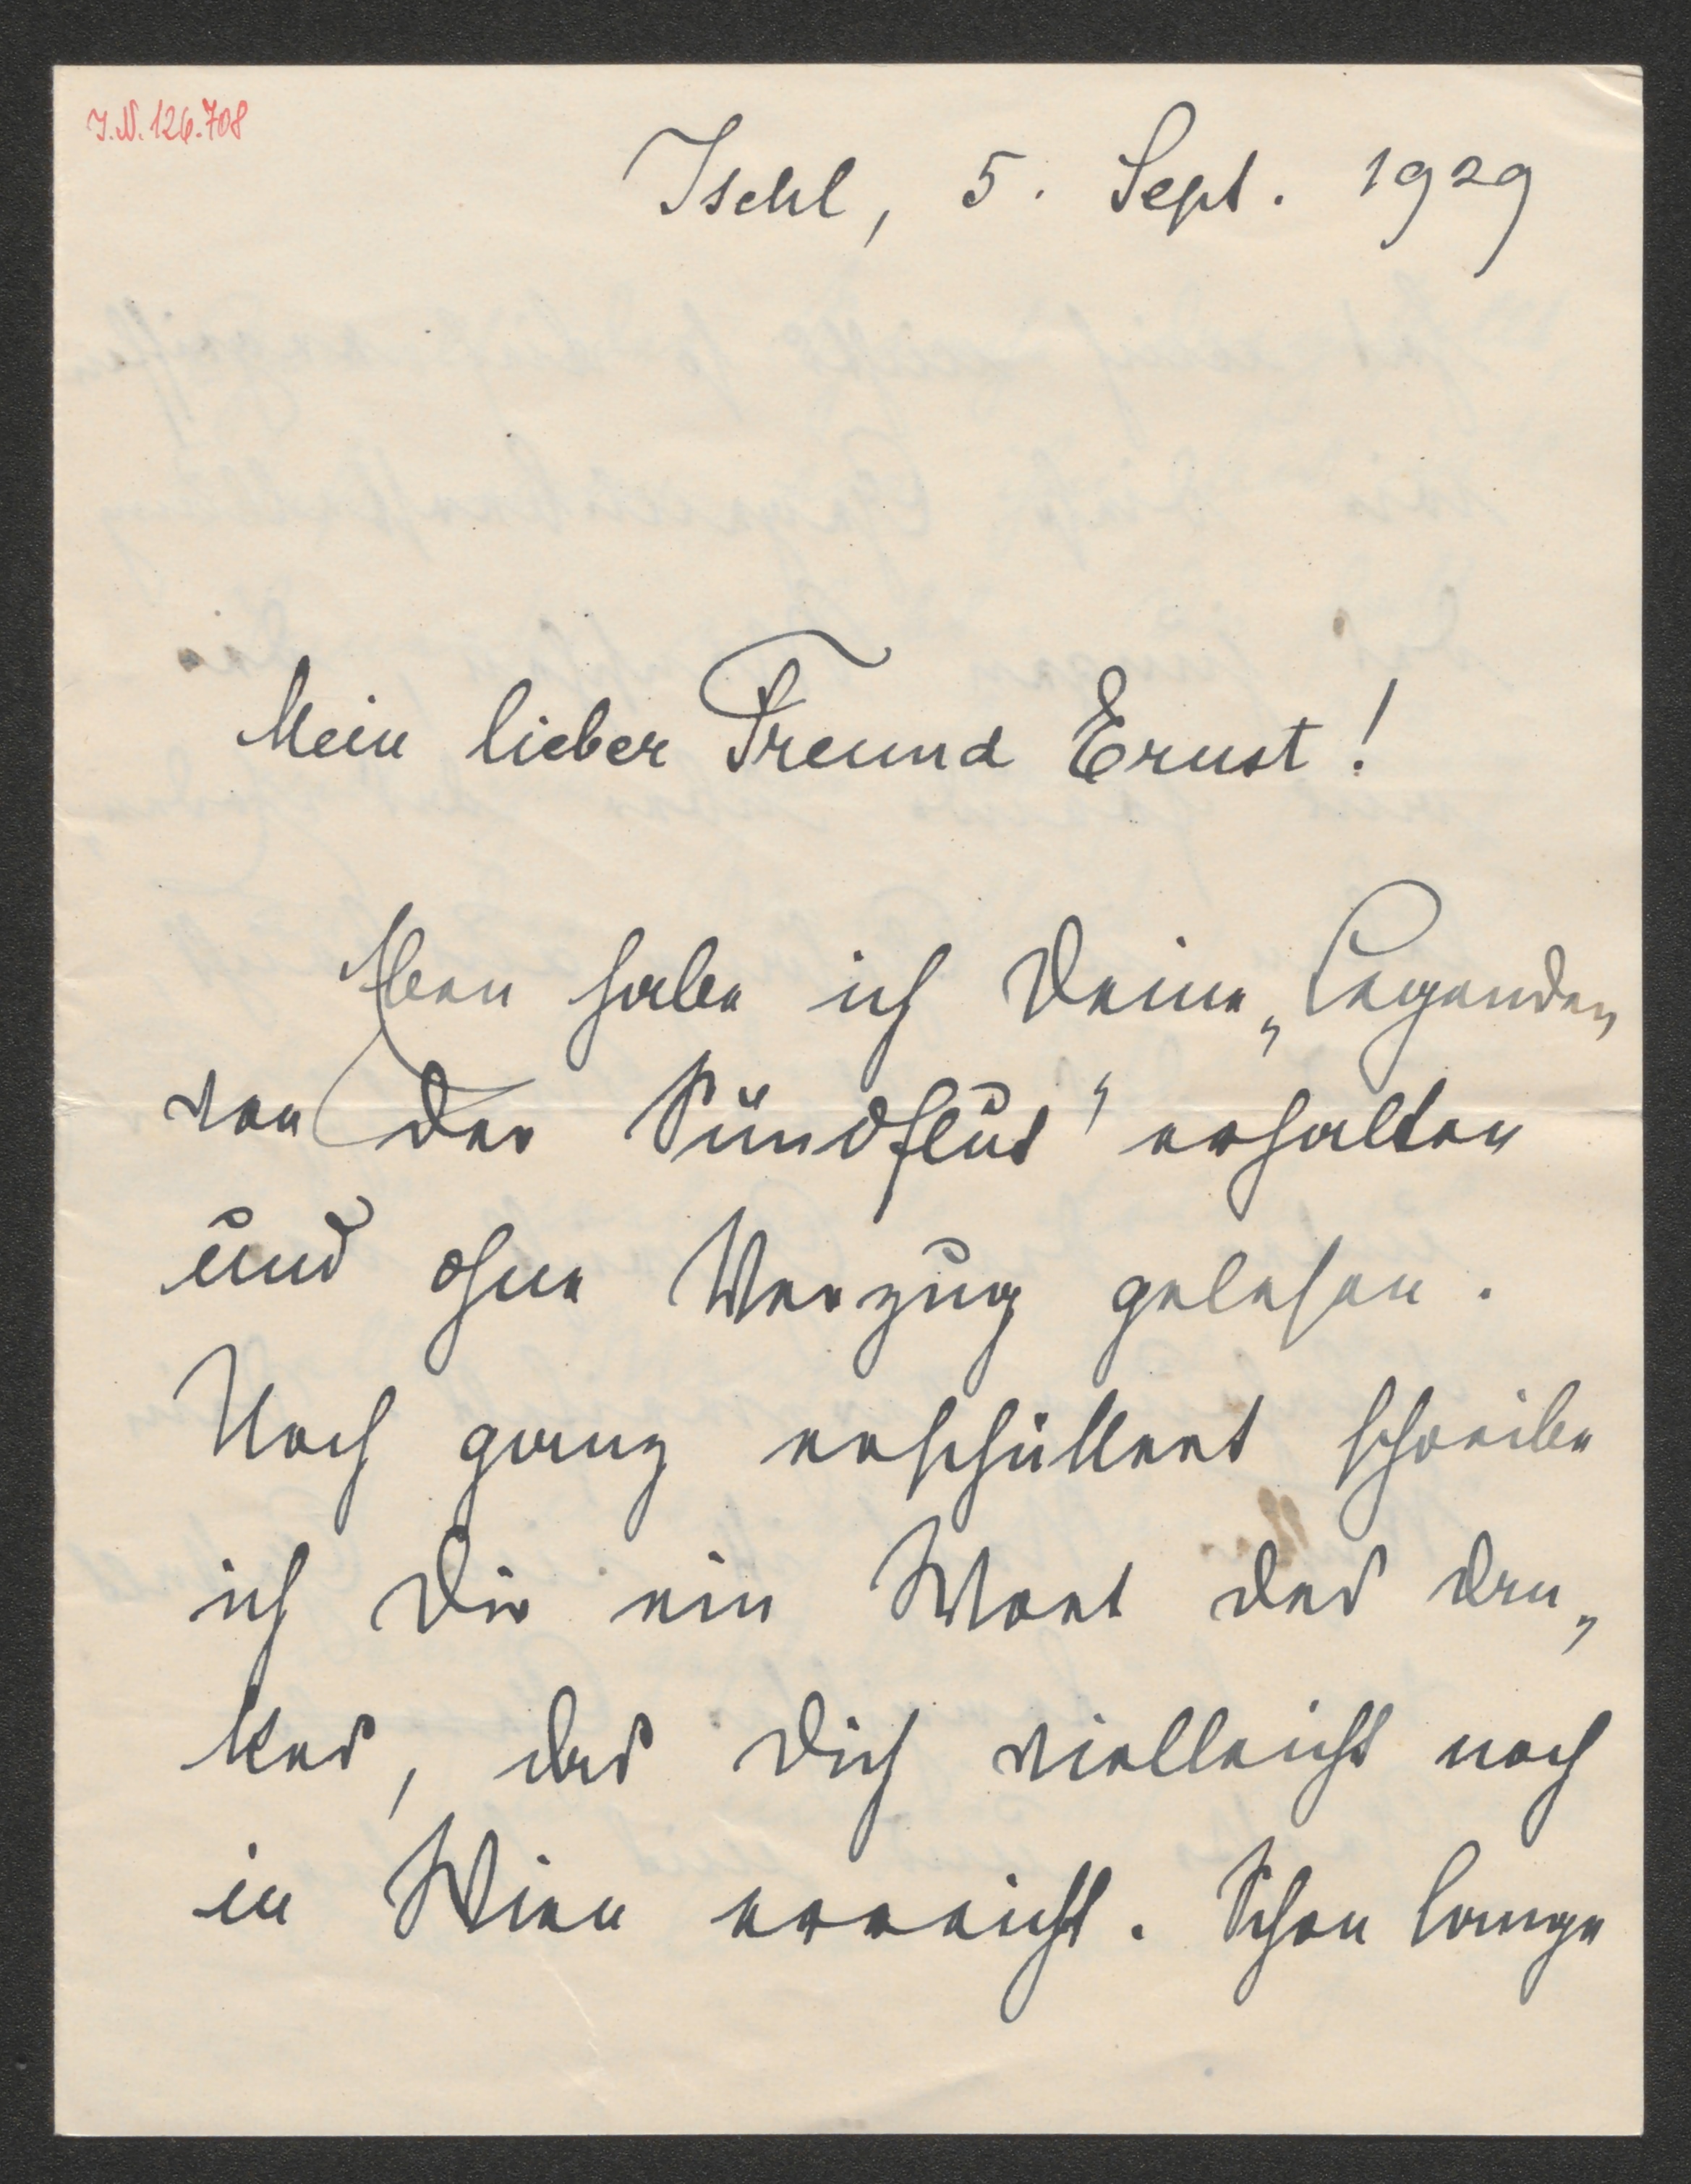 I.N. 126.708
Ischl, 5. Sept. 1929
Mein lieber Freund Ernst!
Eben habe ich Deine „Legenden
von der Sündflut" erhalten
und ohne Verzug gelesen.
Noch ganz erschüttert schreibe
ich Dir ein Wort des Dan„
kes, das Dich vielleicht noch
in Wien erreicht. Schon lange